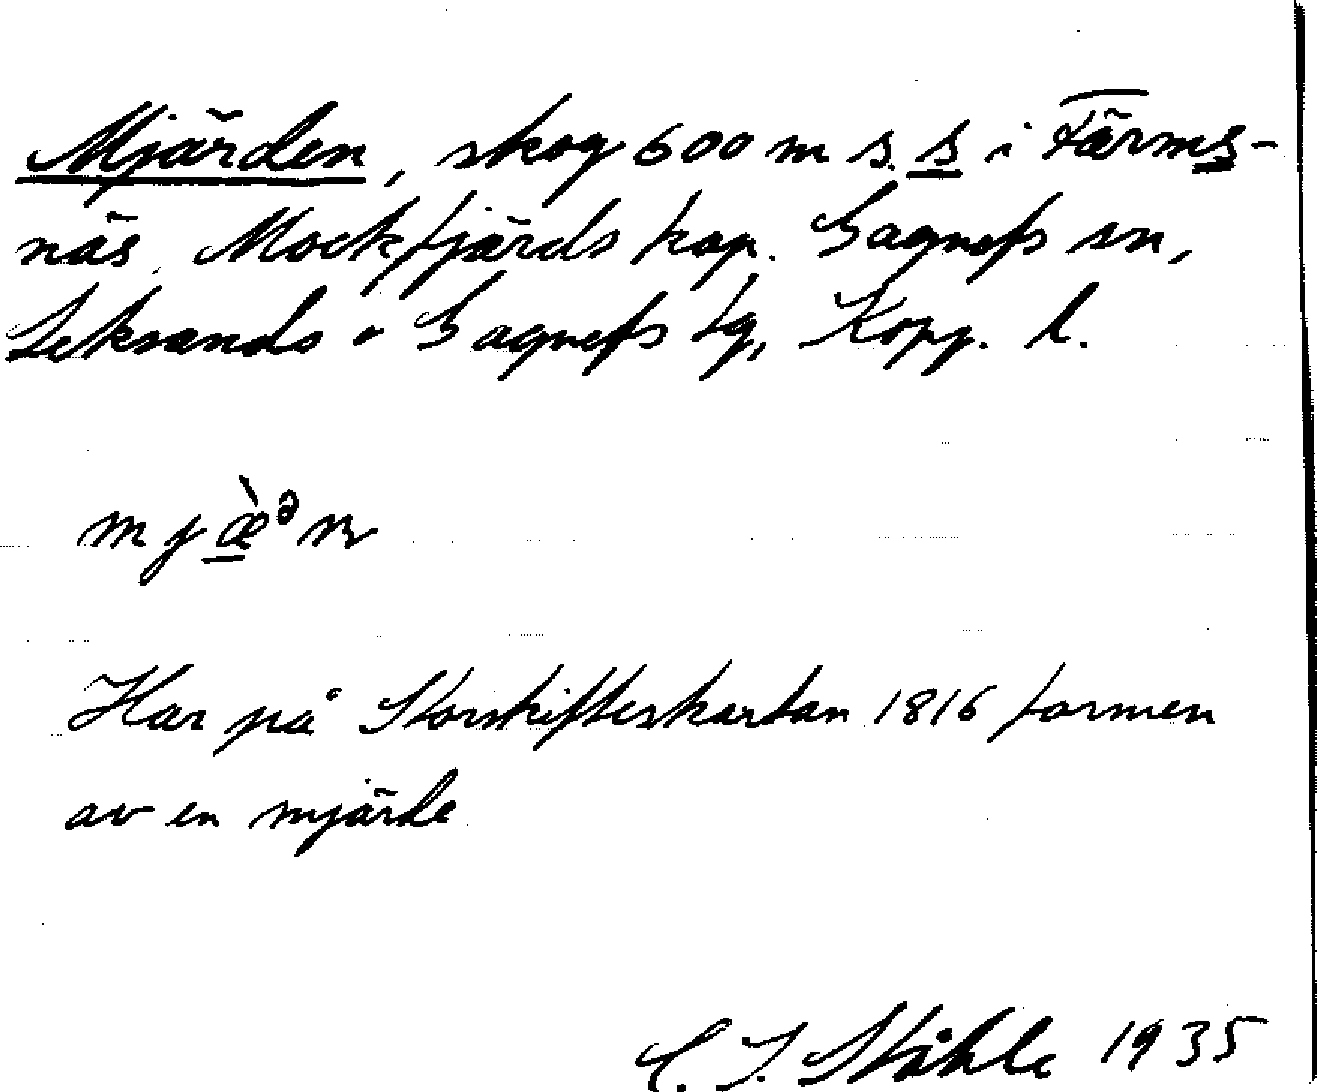 Mjärden, skog 600 m s. s i Färms-
näs Mockfjärds kap. Gagnefs sn,
Leksands o Gagnefs tg, Kopp. l.
Har på Storskifteskartan 1816 formen
av en mjärde
C. I. Ståhle 1935